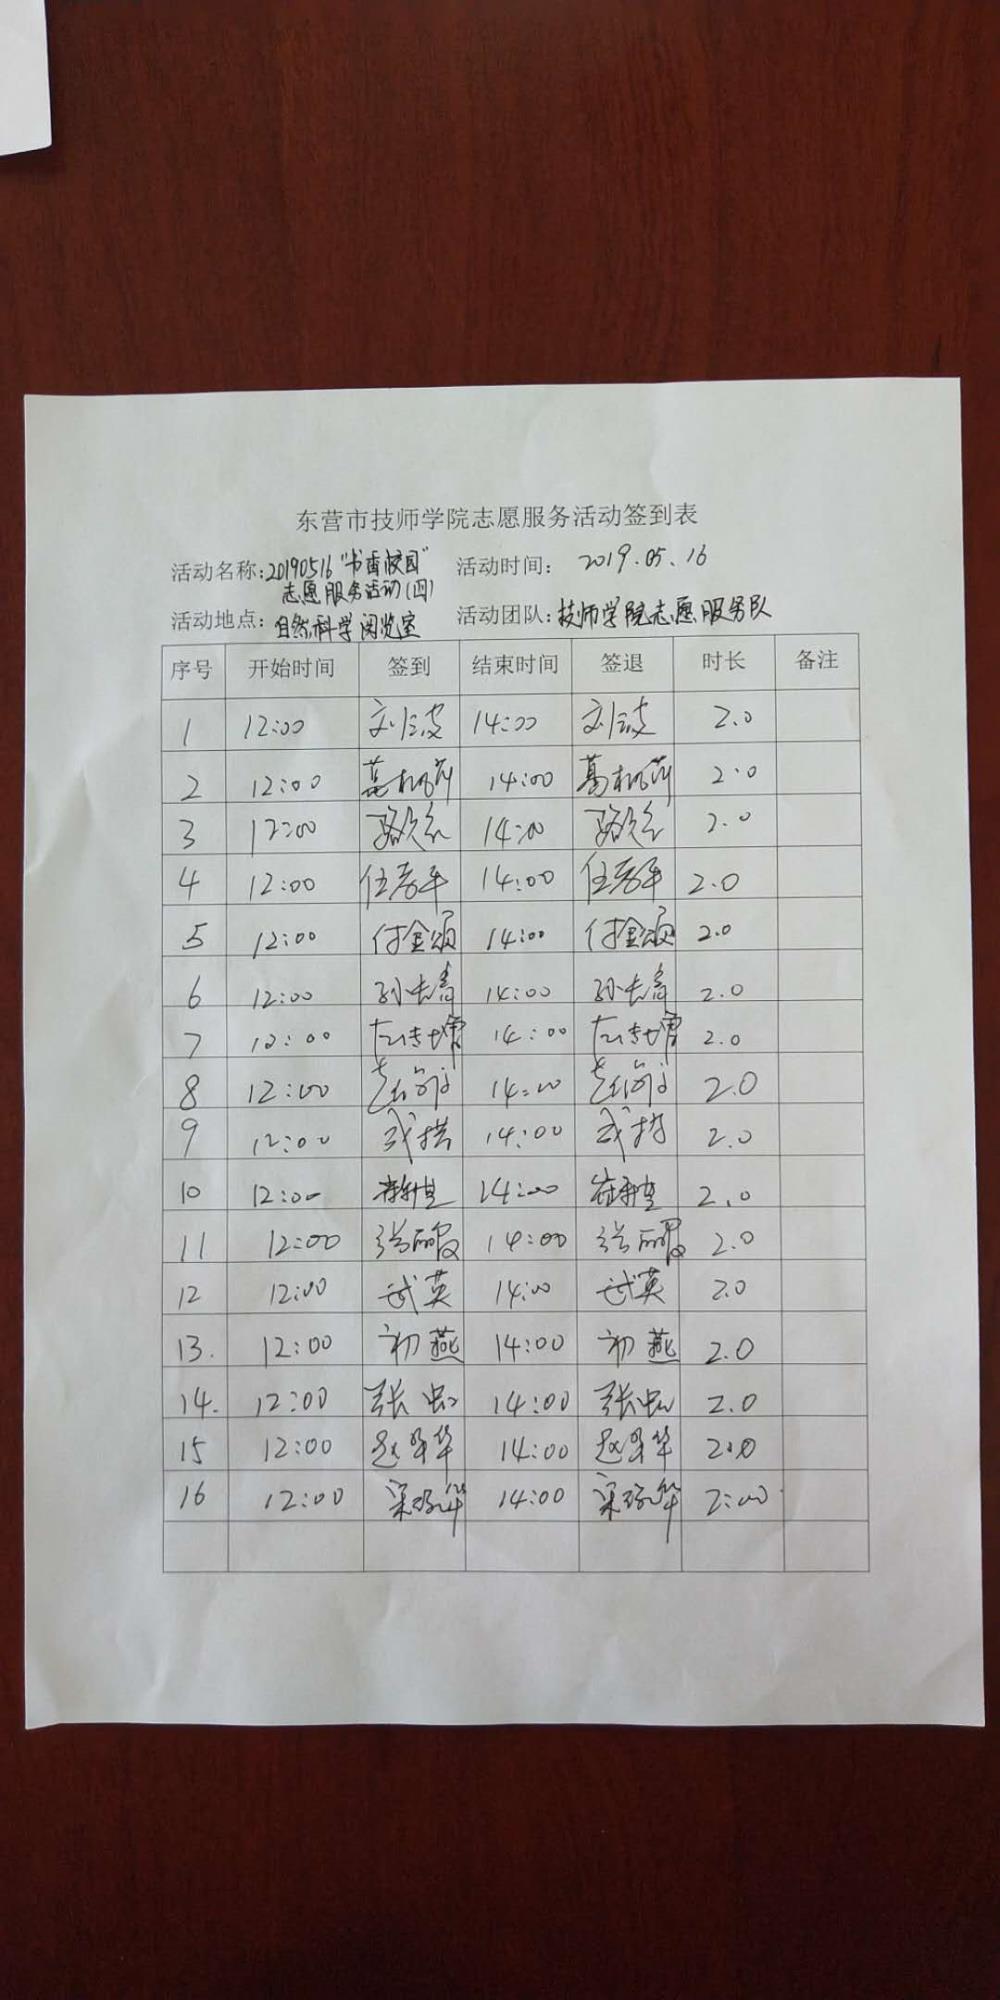 东营市技师学院志愿服务活动签到表
活动名称:20190516"书香校园" 活动时间: 2019.05.16
志愿服务活动(四)
活动地点: 自然科学阅览室 活动团队:技师学院志愿服务队
序号 开始时间 签到 结束时间 签退 时长 备注
1 12:00 14:00 2.0
2 12:00 14:00 2.0
3 12:00 14:00 2.0
4 12:00 14:00 2.0
5 12:00 付金颂 14:00 付金颂 2.0
6 12:00 孙志青 14:00 孙志青 2.0
7 12:00 14:00 2.0
8 12:00 14:00 2.0
9 12:00 14:00 2.0
10 12:00 14:00 2.0
11 12:00 张丽霞 14:00 张丽霞 2.0
12 12:00 武英 14:00 武英 2.0
13. 12:00 初燕 14:00 初燕 2.0
14. 12:00 张虹 14:00 张虹 2.0
15 12:00 14:00 2.0
16 12:00 14:00 2:00